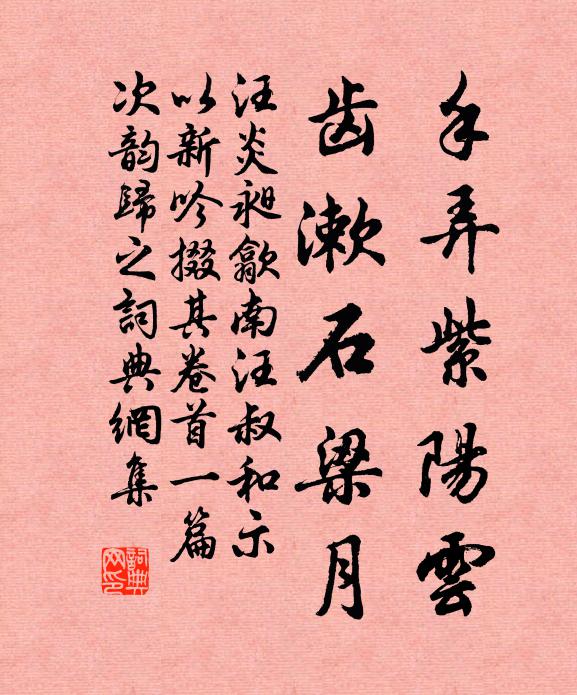 手弄紫陽雲
齿漱石梁月
汪炎昶歙南汪叔和示
以新吟掇其卷首一篇
次韵歸之詞典網集
詞典网印